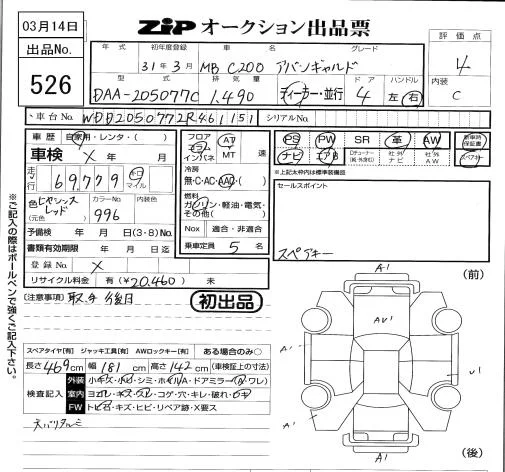 03月14日
ZIP オークション出品票
出品No.
526
年式
初年度登録
車名
グレード
31年3月 MB C200 アバンギャルド
型式
排気量
ドア
ハンドル
DAA-205077C 1.490 ディーラー・並行 4 左・右
評価点
4
内装
C
車台No. WDD2050772R461151
シリアルNo.
車歴 自家用・レンタ・( )
車検 X 年 月
走行 69,779 キロ マイル
色 ヒヤシンスレッド
(元色)
カラーNo.
996
内装色
予備検 年 月 日(3・8)No.
書類有効期限 年 月 日迄
登録No. X
リサイクル料金 有(¥20,460) 未
フロア
コラム
インパネ
AT
MT 速
冷房
無・C・AC・AAC・( )
燃料
ガソリン・軽油・電気・
その他( )
Nox 適合・非適合
乗車定員 5 名
PS PW SR 革 AW
ナビ エアB
社外ナビ
社外AW
新車時保証書
スペアキー
※上記太枠内は標準装備品
セールスポイント
スペアキー
(注意事項)
取,予 後日
初出品
スペアタイヤ[有] ジャッキ工具[有] AWロックキー[有] ある場合のみ○
長さ 469cm 幅 181cm 高さ 142cm (車検証上の寸法)
検査記入
外装 小キズ・小ヘコ・シミ・ホイルA・ドアミラー(A・ワレ)
室内 ヨゴレ・キズ・スレ・コゲ・穴・キレ・破れ・ロキ
FW トビ石・キズ・ヒビ・リペア跡・X要ス
天バリタルミ
※ご記入の際はボールペンで強くご記入下さい。
(前)
A1
AU1
A1
U1
A1
A1
(後)